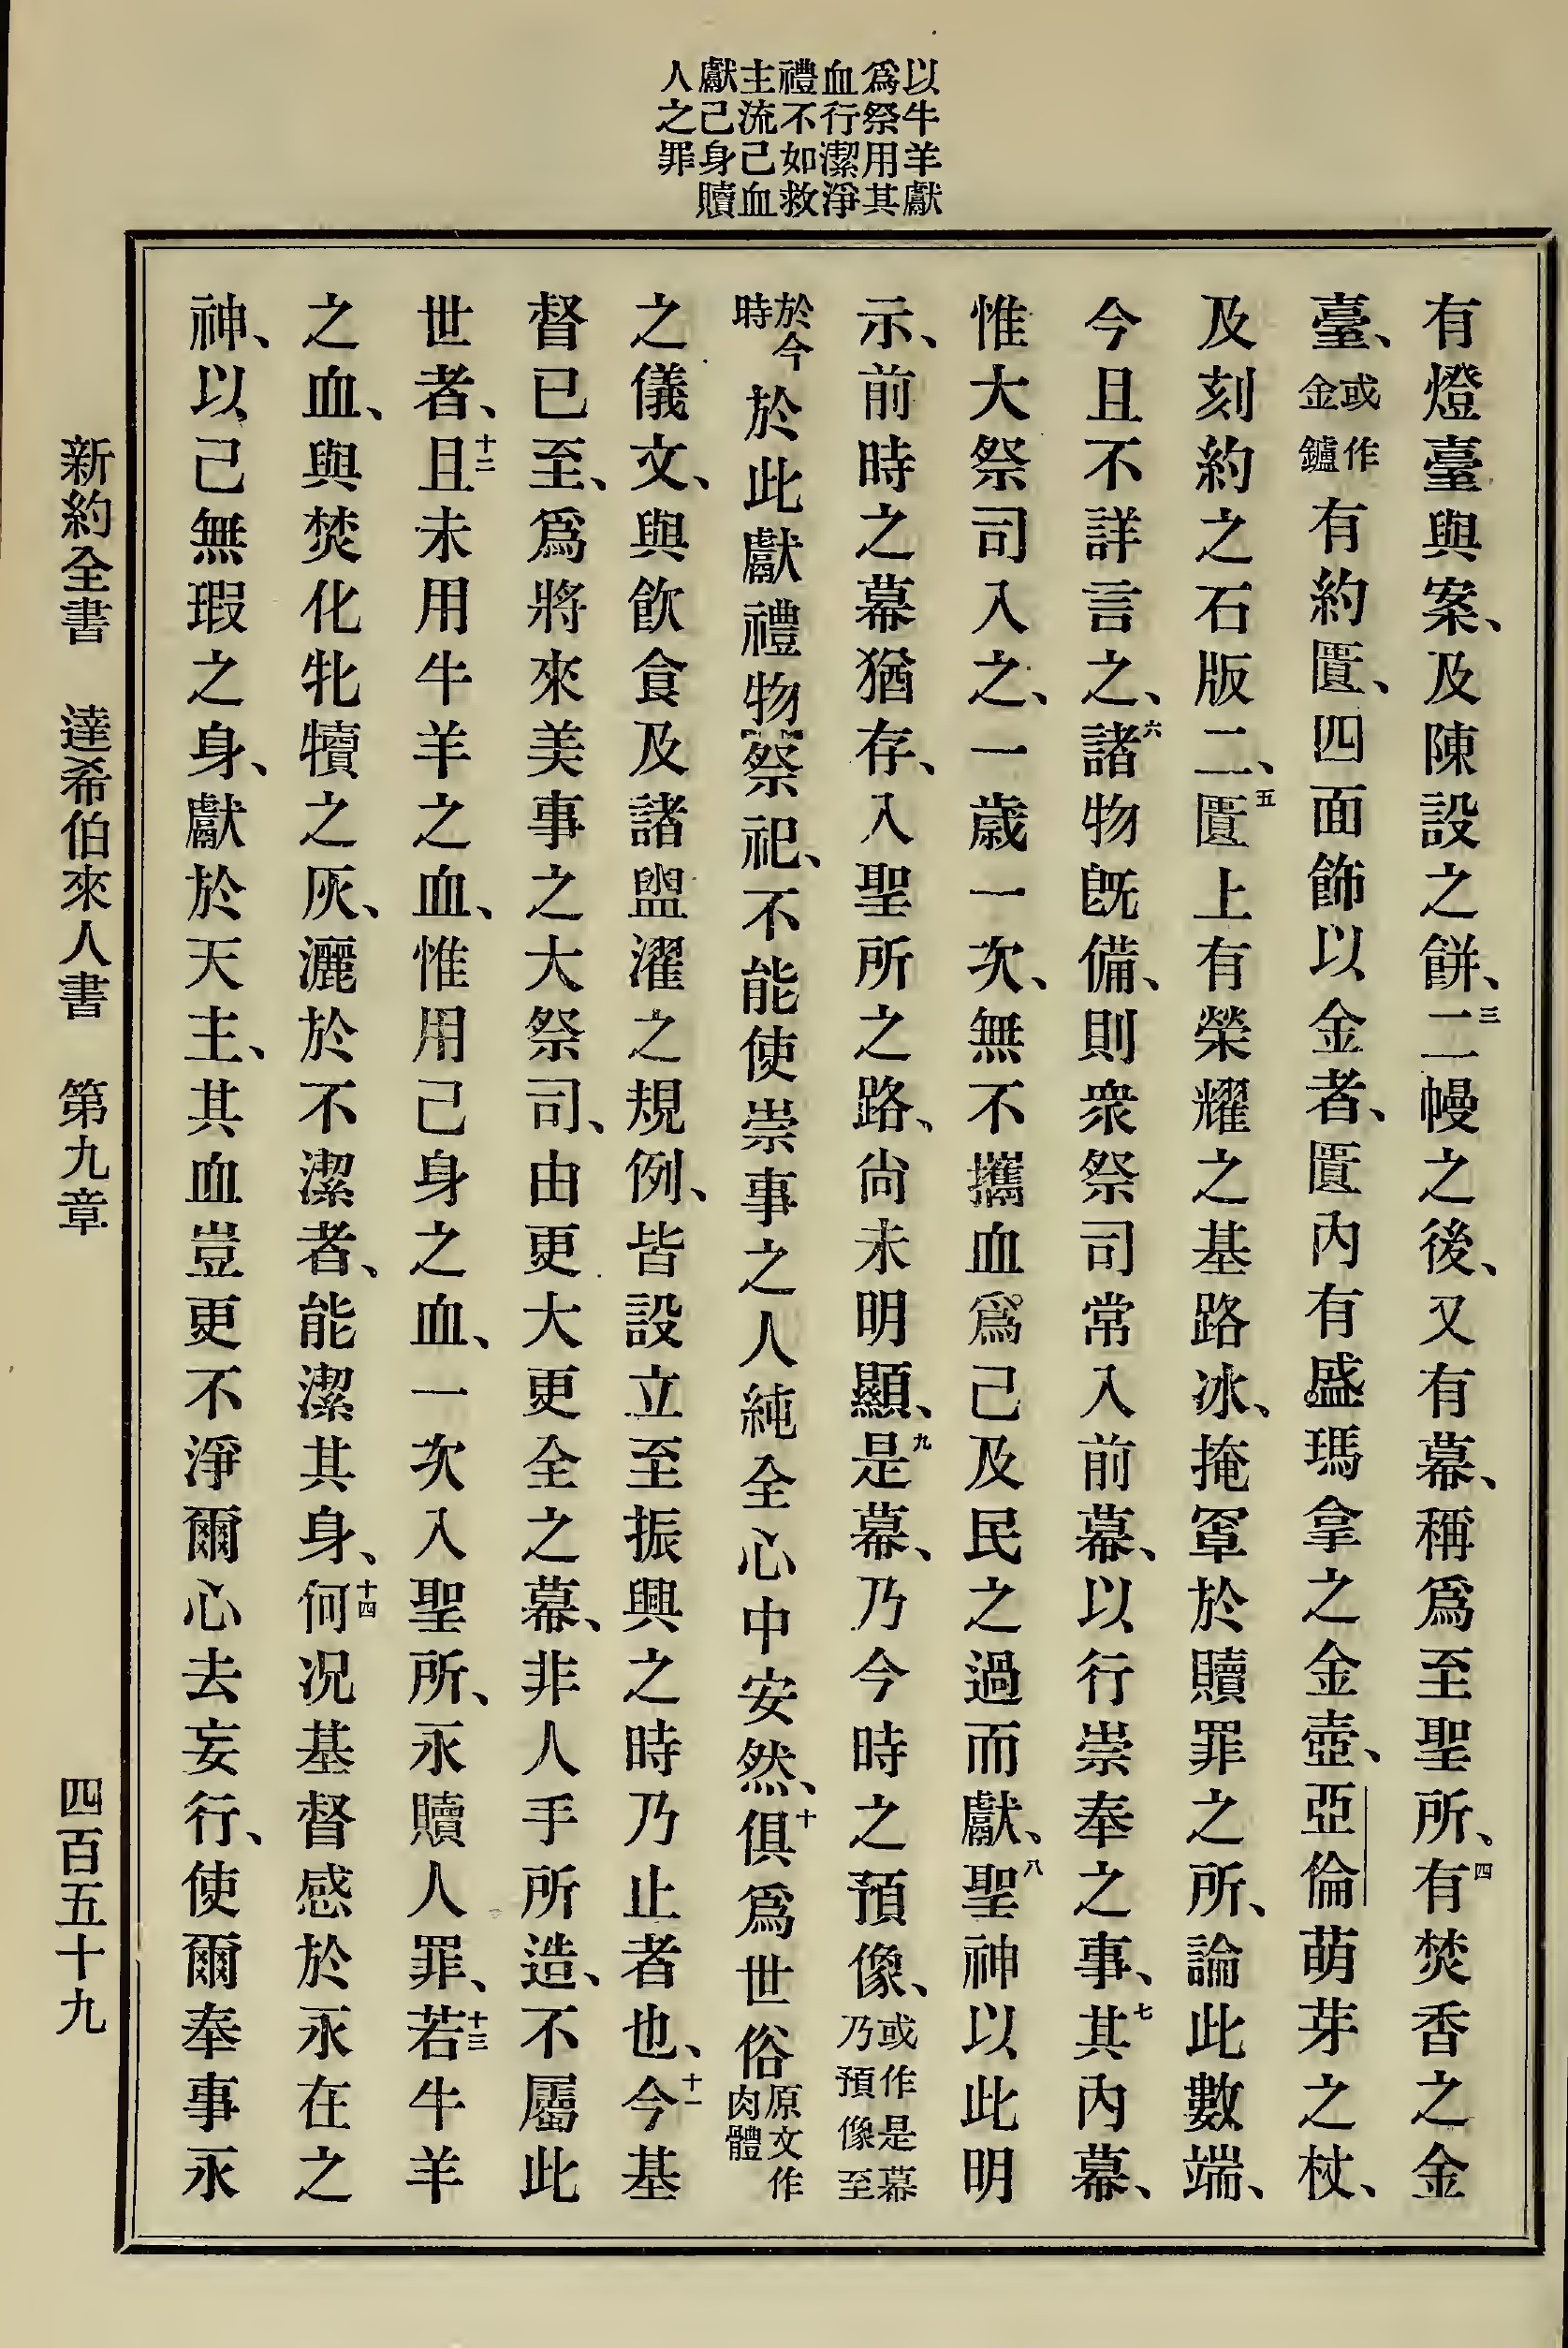 以牛羊獻
爲祭用其
血行潔淨
禮不如救
主流己血
獻己身贖
人之罪
有燈臺與案、及陳設之餅、三二幔之後、又有幕、稱爲至聖所、四有焚香之金
臺、或作金鑪有約匱、四面飾以金者、匱內有盛瑪拿之金壺、亞倫萌芽之杖、
及刻約之石版二、五匱上有榮耀之基路冰、掩罩於贖罪之所、論此數端、
今且不詳言之、六諸物旣備、則衆祭司常入前幕、以行崇奉之事、七其內幕、
惟大祭司入之、一歲一次、無不攜血爲己及民之過而獻、八聖神以此明
示、前時之幕猶存、入聖所之路、尙未明顯、九是幕、乃今時之預像、或作是幕乃預像至
於今時於此獻禮物祭祀、不能使崇事之人純全心中安然、十俱爲世俗原文作肉體
之儀文、與飮食及諸盥濯之規例、皆設立至振興之時乃止者也、十一今基
督已至、爲將來美事之大祭司、由更大更全之幕、非人手所造、不屬此
世者、十二且未用牛羊之血、惟用己身之血、一次入聖所、永贖人罪、十三若牛羊
之血、與焚化牝犢之灰、灑於不潔者、能潔其身、十四何况基督感於永在之
神、以己無瑕之身、獻於天主、其血豈更不淨爾心去妄行、使爾奉事永
新約全書　達希伯來人書　第九章　四百五十九